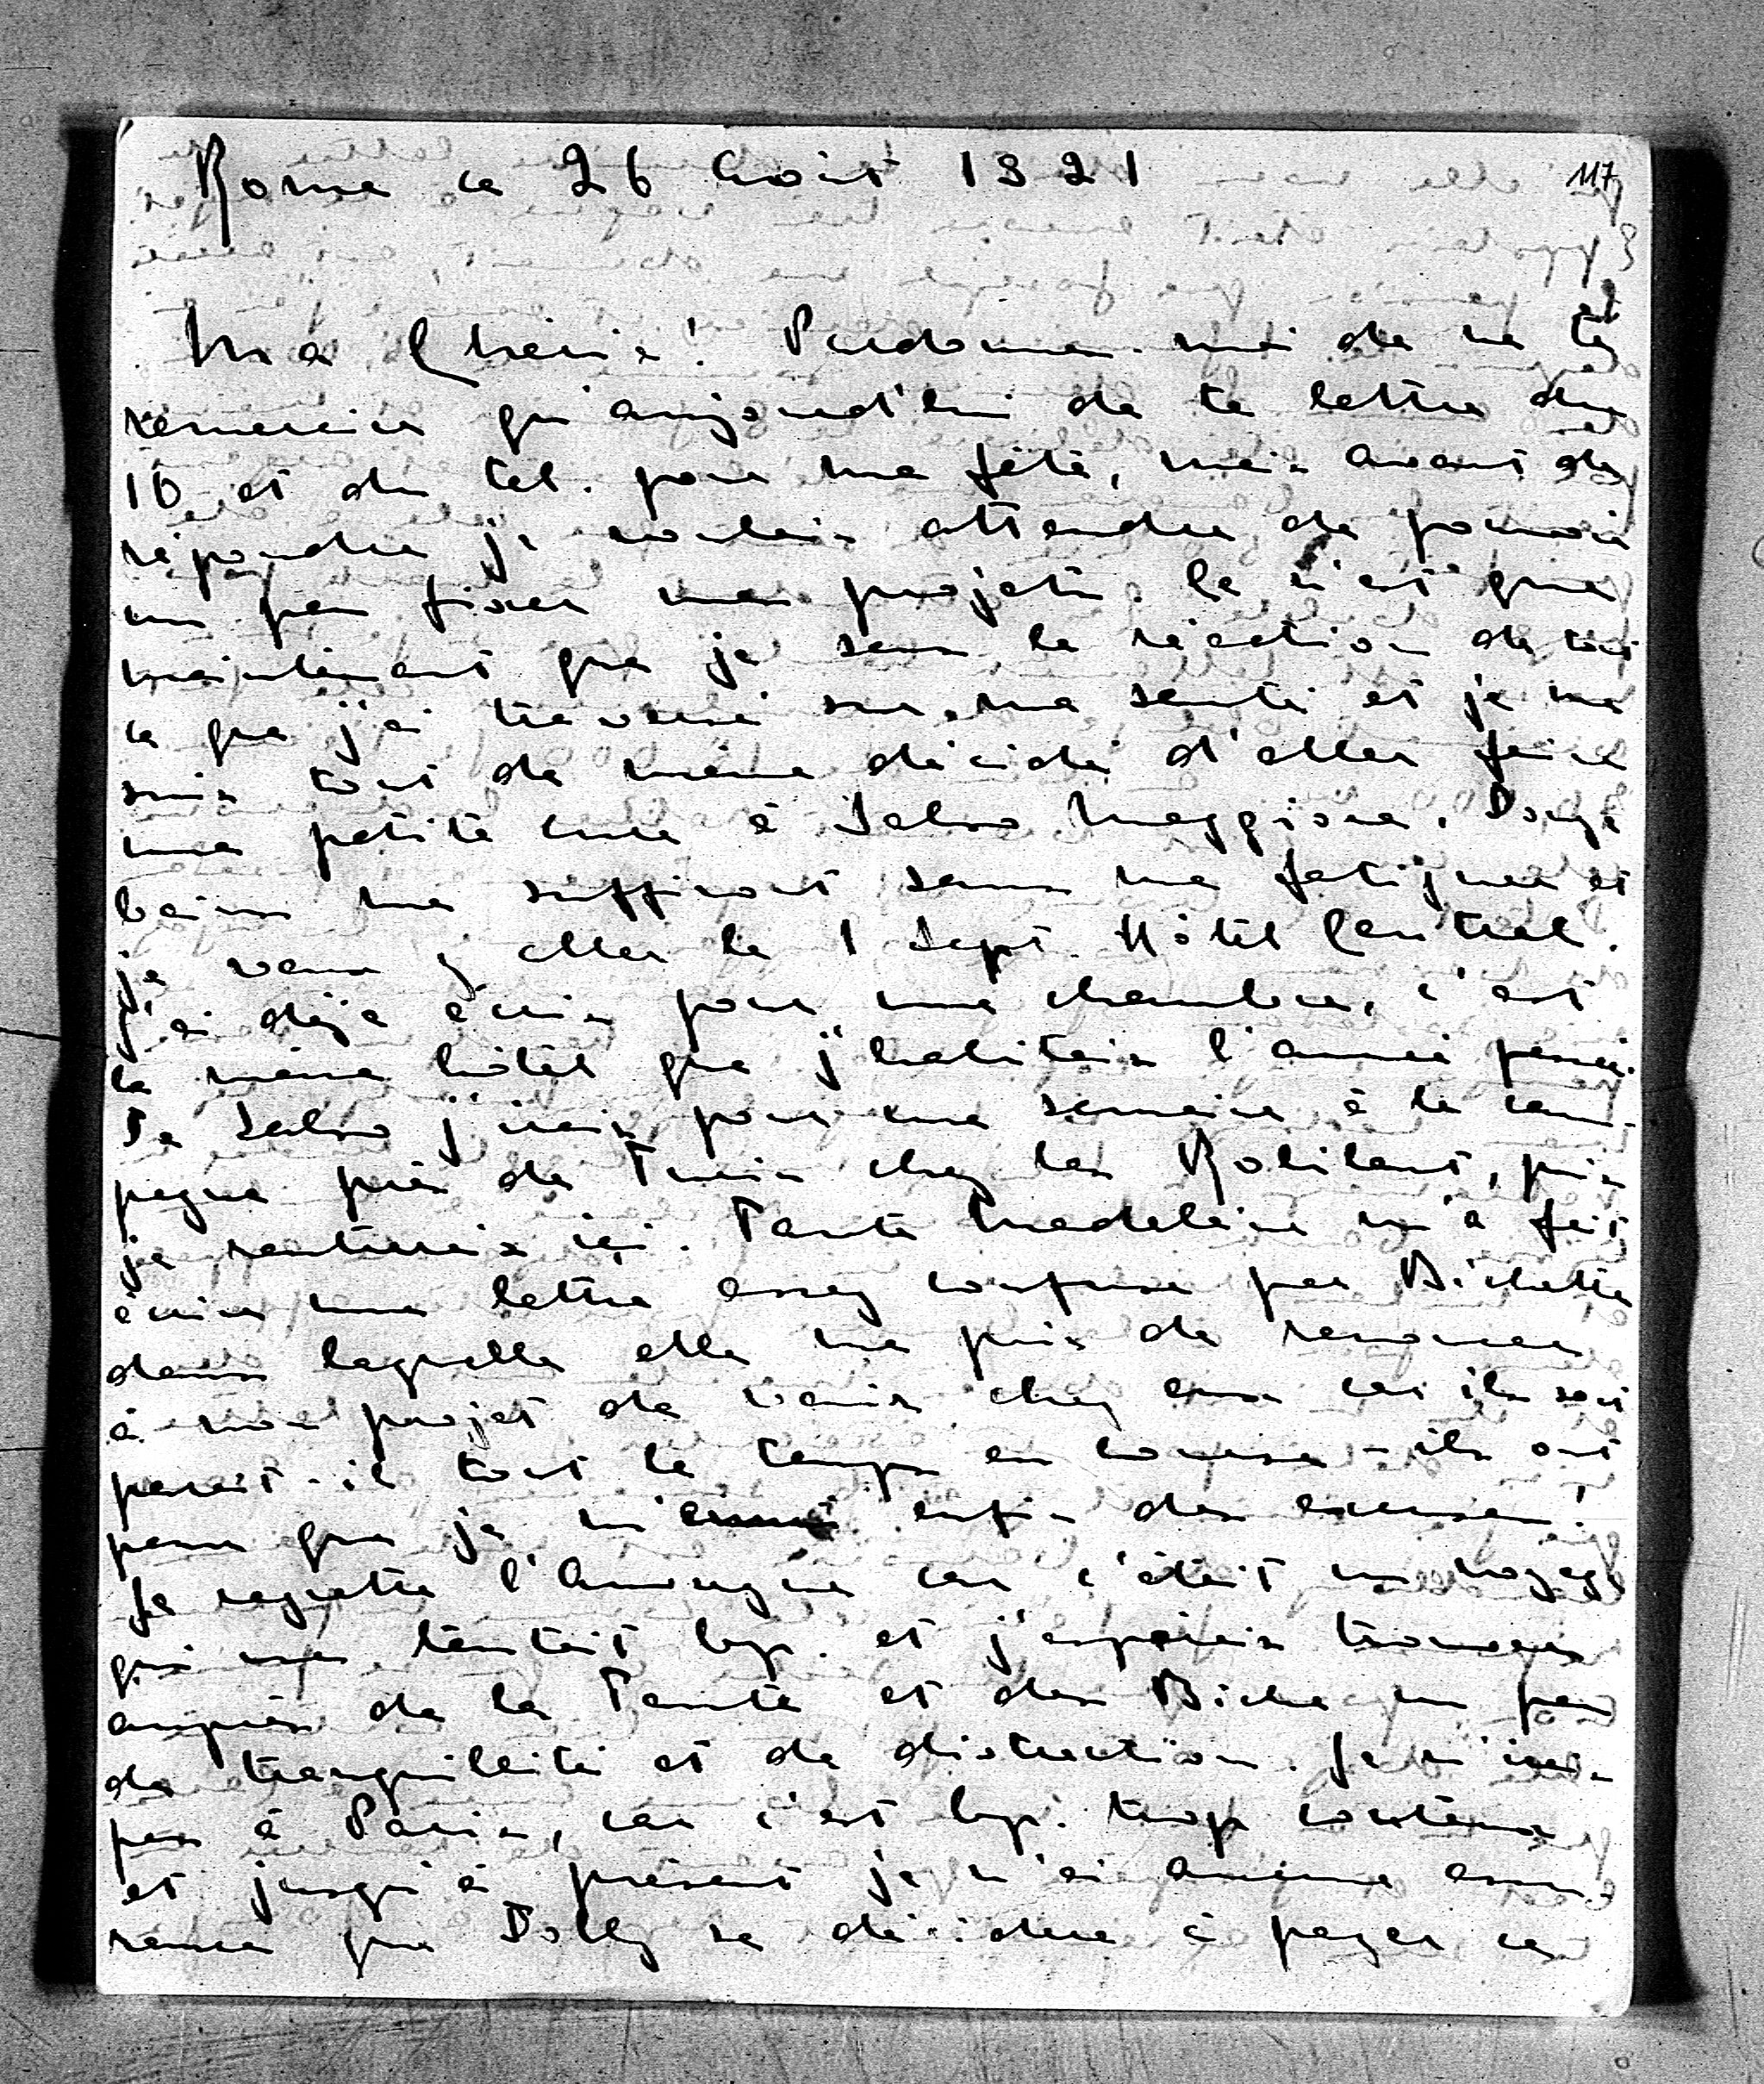 Rome ce 26 Août 1921
117
Ma Chérie! Pardonne-moi de ne te
remercier qu'aujourd'hui de ta lettre du
16 et du tél. pour ma fête, mais avant de
répondre je voulais attendre de pouvoir
un peu fixer mes projets. Ce n'est que
maintenant que je sens la réaction de tout
ce que j'ai traversé sur ma santé et je me
suis tout de même décidé d'aller faire
une petite cure à Salso Maggiore. Douze
bains me suffiront sans me fatiguer et
je veux y aller le 1 Sept. Hôtel Central.
J'ai déjà écris pour une chambre, c'est
le même hôtel que j'habitais l'année passée.
De Salso j'irais pour une semaine à la cam-
pagne près de Turin chez les Robilant, puis
je rentrerais ici. Tante Madeleine m'a fait
écrire une lettre assez confuse par Bichette
dans laquelle elle me prie de renoncer
à mon projet de venir chez eux car ils sont
parait-il tout le temps en course - ils ont
peur que je m' enfin des excuses!
Je regrette l'Auvergne car c'était un voyage
qui me tentait bcp. et j'espérais trouver
auprès de la Tante et des Biche un peu
de tranquilité et de distraction. Je n'irai
pas à Paris, car c'est bcp. trop coûteux
et jusqu'à présent je n'ai aucune assu-
rance que Dolly se décidera à payer ce